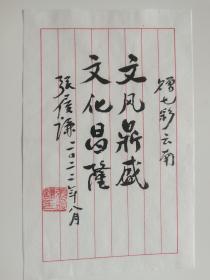 赠七彩云南
文风鼎盛
文化昌隆
张広谦二〇二二年八月